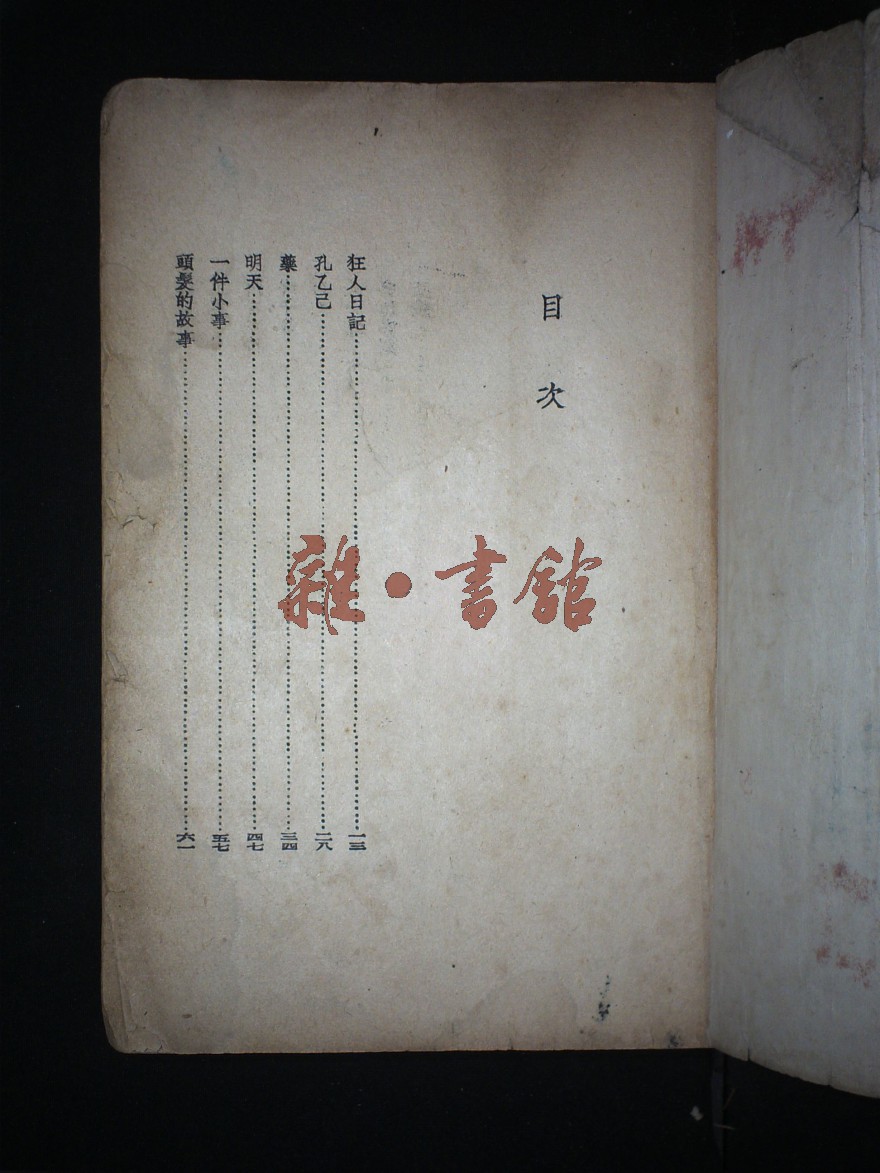 目次
狂人日記………一三
孔乙己………二八
藥………三四
明天………四七
一件小事………五七
頭髮的故事………六一
雜•書館